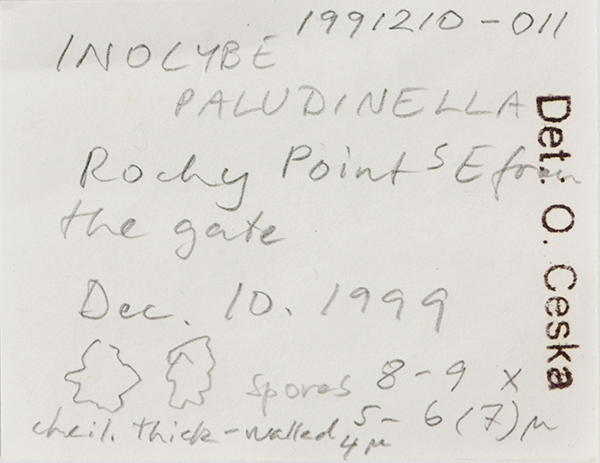 1991210-011
INOCYBE
PALUDINELLA
Rocky Point SE from
the gate
Dec. 10. 1999
spores 8-9 x
5-6(7)µ
cheil. thick-walled
4µ
Det.: O. Ceska